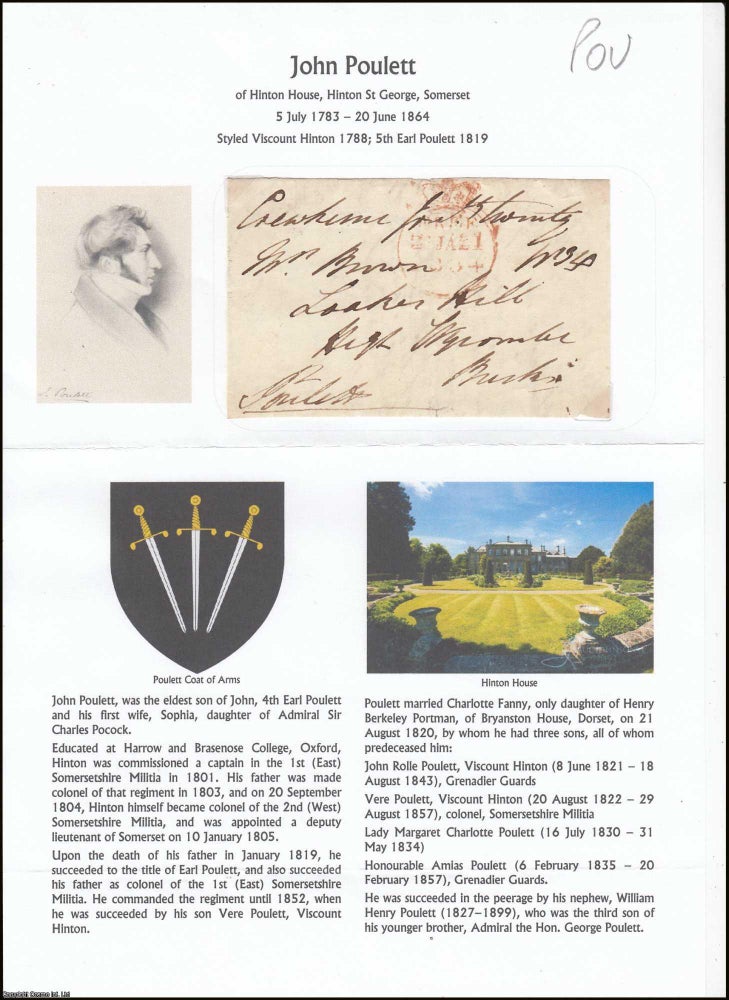 POV
John Poulett
of Hinton House, Hinton St George, Somerset
5 July 1783 – 20 June 1864
Styled Viscount Hinton 1788; 5th Earl Poulett 1819
Crewkerne twenty
Mrs Brown
Loakes Hill
High Wycombe
Bucks
Poulett
J. Poulett
Poulett Coat of Arms
John Poulett, was the eldest son of John, 4th Earl Poulett
and his first wife, Sophia, daughter of Admiral Sir
Charles Pocock.
Educated at Harrow and Brasenose College, Oxford,
Hinton was commissioned a captain in the 1st (East)
Somersetshire Militia in 1801. His father was made
colonel of that regiment in 1803, and on 20 September
1804, Hinton himself became colonel of the 2nd (West)
Somersetshire Militia, and was appointed a deputy
lieutenant of Somerset on 10 January 1805.
Upon the death of his father in January 1819, he
succeeded to the title of Earl Poulett, and also succeeded
his father as colonel of the 1st (East) Somersetshire
Militia. He commanded the regiment until 1852, when
he was succeeded by his son Vere Poulett, Viscount
Hinton.
Hinton House
Poulett married Charlotte Fanny, only daughter of Henry
Berkeley Portman, of Bryanston House, Dorset, on 21
August 1820, by whom he had three sons, all of whom
predeceased him:
John Rolle Poulett, Viscount Hinton (8 June 1821 – 18
August 1843), Grenadier Guards
Vere Poulett, Viscount Hinton (20 August 1822 – 29
August 1857), colonel, Somersetshire Militia
Lady Margaret Charlotte Poulett (16 July 1830 – 31
May 1834)
Honourable Amias Poulett (6 February 1835 – 20
February 1857), Grenadier Guards.
He was succeeded in the peerage by his nephew, William
Henry Poulett (1827–1899), who was the third son of
his younger brother, Admiral the Hon. George Poulett.
Copyright: Cosmo Ltd. Ltd